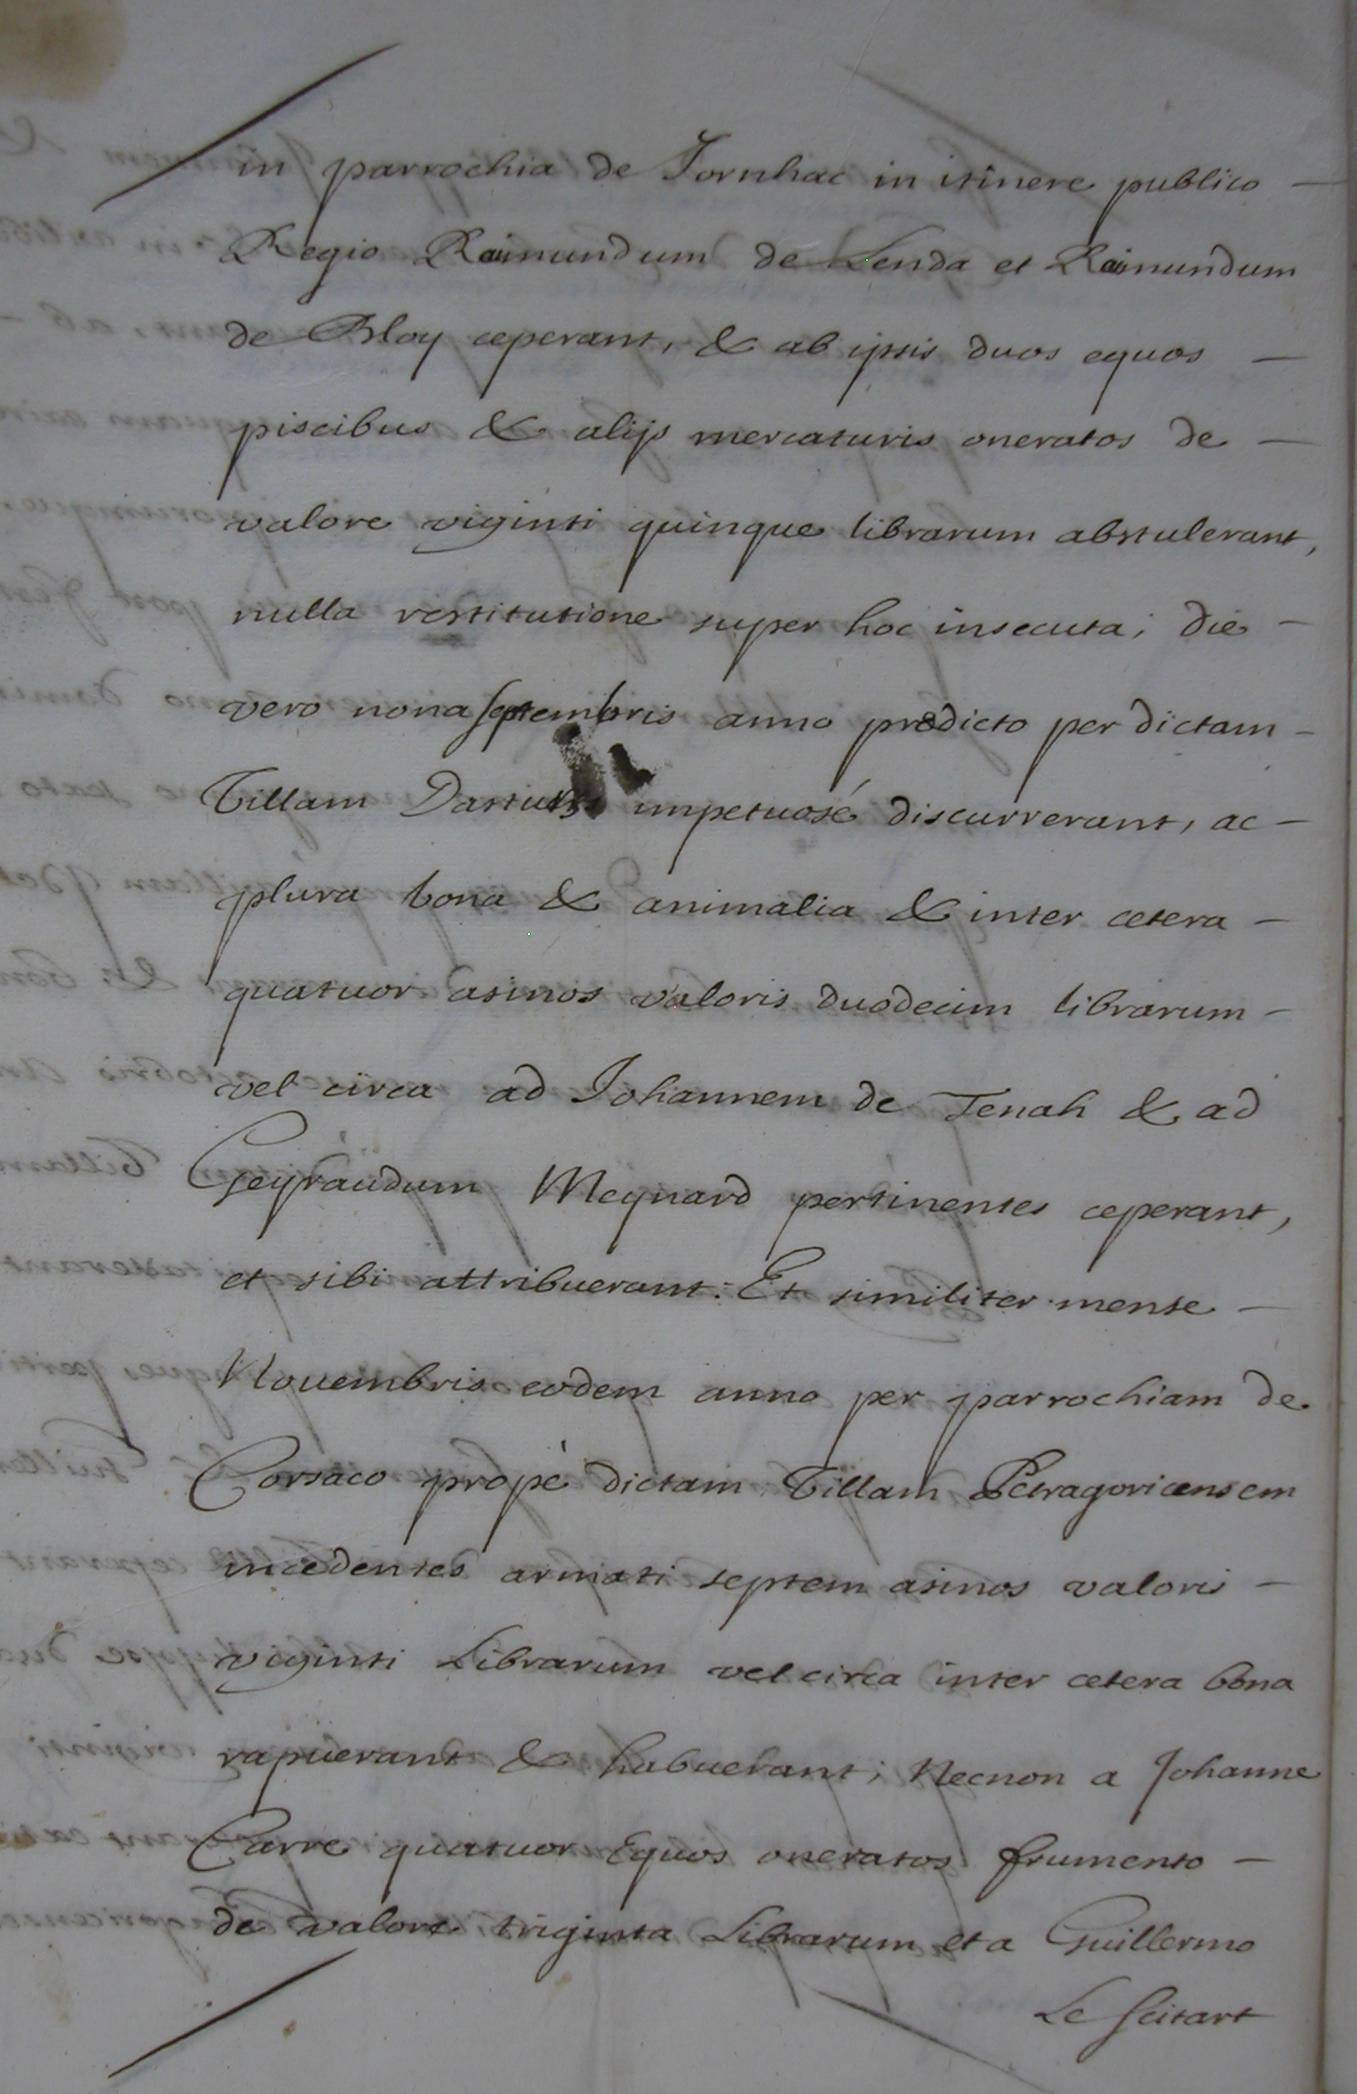 in parrochia de Jornhac in itinere publico
Regio Raimundum de Lenda et Raimundum
de Bloy ceperant, & ab ipsis duos equos
piscibus & alijs mercaturis oneratos de
valore viginti quinque librarum abstulerant,
nulla restitutione super hoc insecuta; die
vero nona septembris anno predicto per dictam
Villam impetuosé discurrerant, ac
plura bona & animalia & inter cetera
quatuor asinos valoris duodecim librarum
vel circa ad Johannem de Tenah & ad
Geyraudum Meynard pertinentes ceperant,
et sibi attribuerant: Et similiter mense
Nouembris eodem anno per parrochiam de
Corsaco propè dictam Villam Petragoricensem
incedentes armati septem asinos valoris
viginti Librarum vel circa inter cetera bona
rapuerant & habuerant; Necnon a Johanne
Carre quatuor Equos oneratos frumento
de valore triginta Librarum et a Guillermo
Le